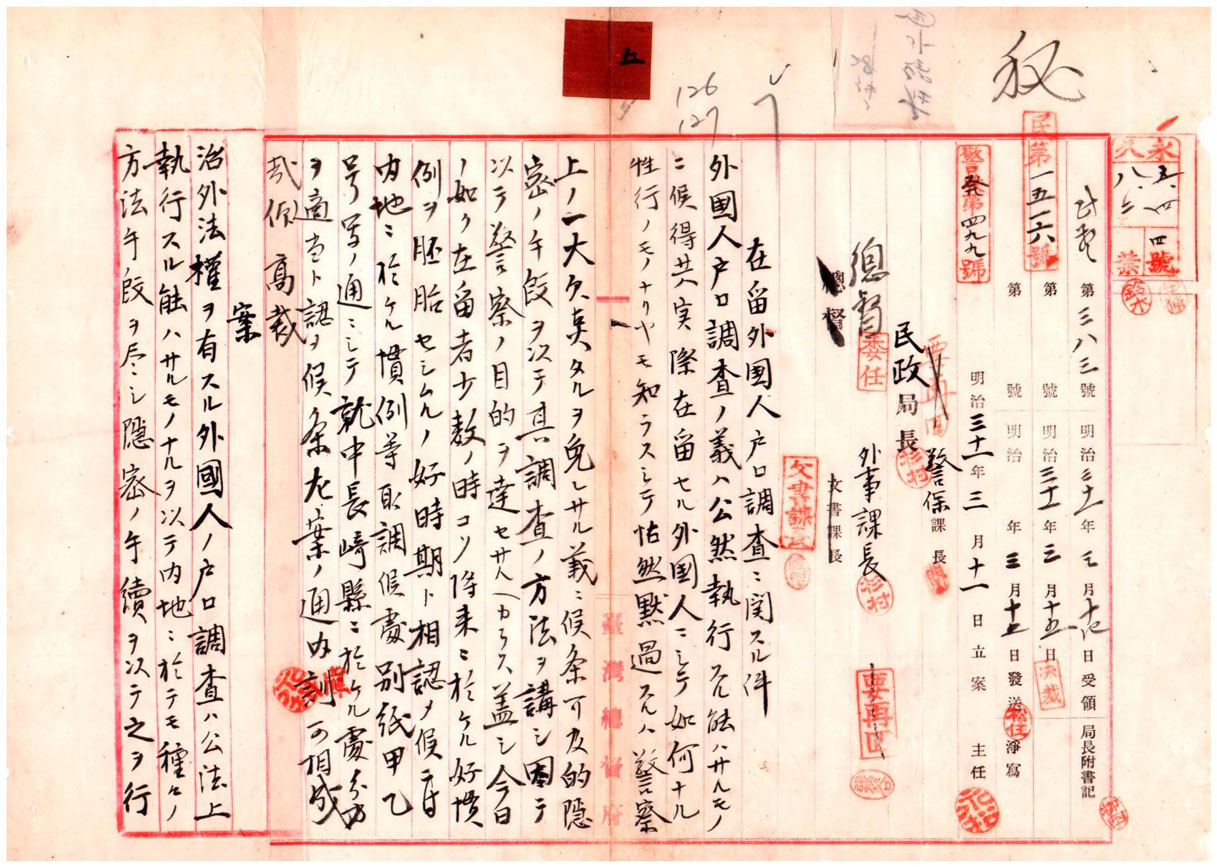 秘
五
126
127
永久
五ノ四 四號
八ノ六
鈴木
民第一五一六號
警發第四九九號
第三八三號 明治三十一年三月 日受領 局長附書記
第 號 明治三十一年三月十五日 決裁
第 號 明治 年三月十五日發送 淨寫
明治三十一年三月十一日立案 主任
民政局長 警保課長
杉村
總督 委任 外事課長 杉村
總督
文書課長
文書課
要再回
在留外國人戸口調査ニ関スル件
外國人戸口調査ノ義ハ公然執行スル能ハサルモノ
ニ候得共実際在留セル外國人ニシテ如何ナル
性行ノモノナリヤモ知ラスシテ怙然默過スルハ警察
上ノ一大欠莫タルヲ免レサル義ニ候条可及的隠
密ノ手段ヲ以テ其調査ノ方法ヲ講シ因テ
以テ警察ノ目的ヲ達セサルヘカラス蓋シ今日
ノ如ク在留者少数ノ時コソ降来ニ於ケル好慣
例ヲ胚胎セシムルノ好時期ト相認メ候ニ付
内地ニ於ケル慣例等取調候處別紙甲乙
号写ノ通ニシテ就中長崎縣ニ於ケル處分方
ヲ適当ト認メ候条左案ノ通内訓可相成
哉仰高裁
臺灣總督府
案
治外法權ヲ有スル外國人ノ戸口調査ハ公法上
執行スル能ハサルモノナルヲ以テ内地ニ於テモ種々ノ
方法手段ヲ尽シ隠密ノ手續ヲ以テ之ヲ行